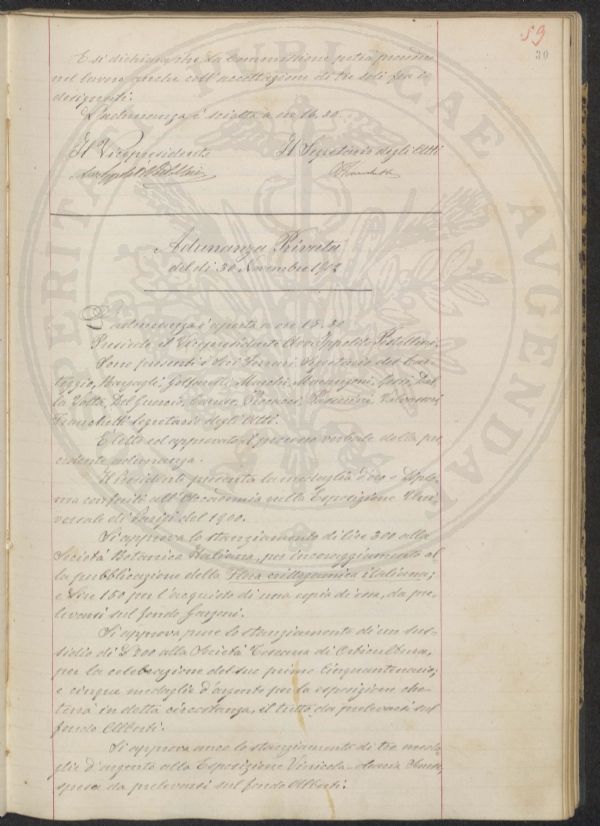 59
30
E si dichiara che la Commissione potrà procedere
nel lavoro anche coll'accettazione di tre soli fra i
designati.
L'adunanza è sciolta a ore 16.30.
Il Vicepresidente Il Segretario degli Atti
PERITIA PVBLICAE AVGENDAE
Adunanza Privata
del dì 30 Novembre 1902
L'adunanza è aperta a ore 15.30
Presiede il Vicepresidente Avv. Ippolito Pestellini.
Sono presenti i Sigri Ferrari, Segretario del Car-
teggio, Passerini, Valvassori
Franchetti Segretario degli Atti.
È letto ed approvato il processo verbale della pre-
cedente adunanza.
Il presidente presenta la medaglia d'oro e diplo-
ma conferiti all'Accademia nella Esposizione Uni-
versale di Parigi del 1900.
Si approva lo stanziamento di lire 300 alla
Società Botanica Italiana, per incoraggiamento al
la pubblicazione della Flora crittogamica italiana;
e lire 150 per l'acquisto di una copia di essa, da pre-
levarsi sul fondo
Si approva pure lo stanziamento di un sus-
sidio di L 200 alla Società Toscana di Orticultura,
per la celebrazione del suo primo Cinquantenario;
e cinque medaglie d'argento per la esposizione che
terrà in detta circostanza, il tutto da prelevarsi sul
fondo Alberti.
Si approva anco lo stanziamento di tre meda-
glie d'argento alla Esposizione Vinicola-olearia
spesa da prelevarsi sul fondo Alberti.